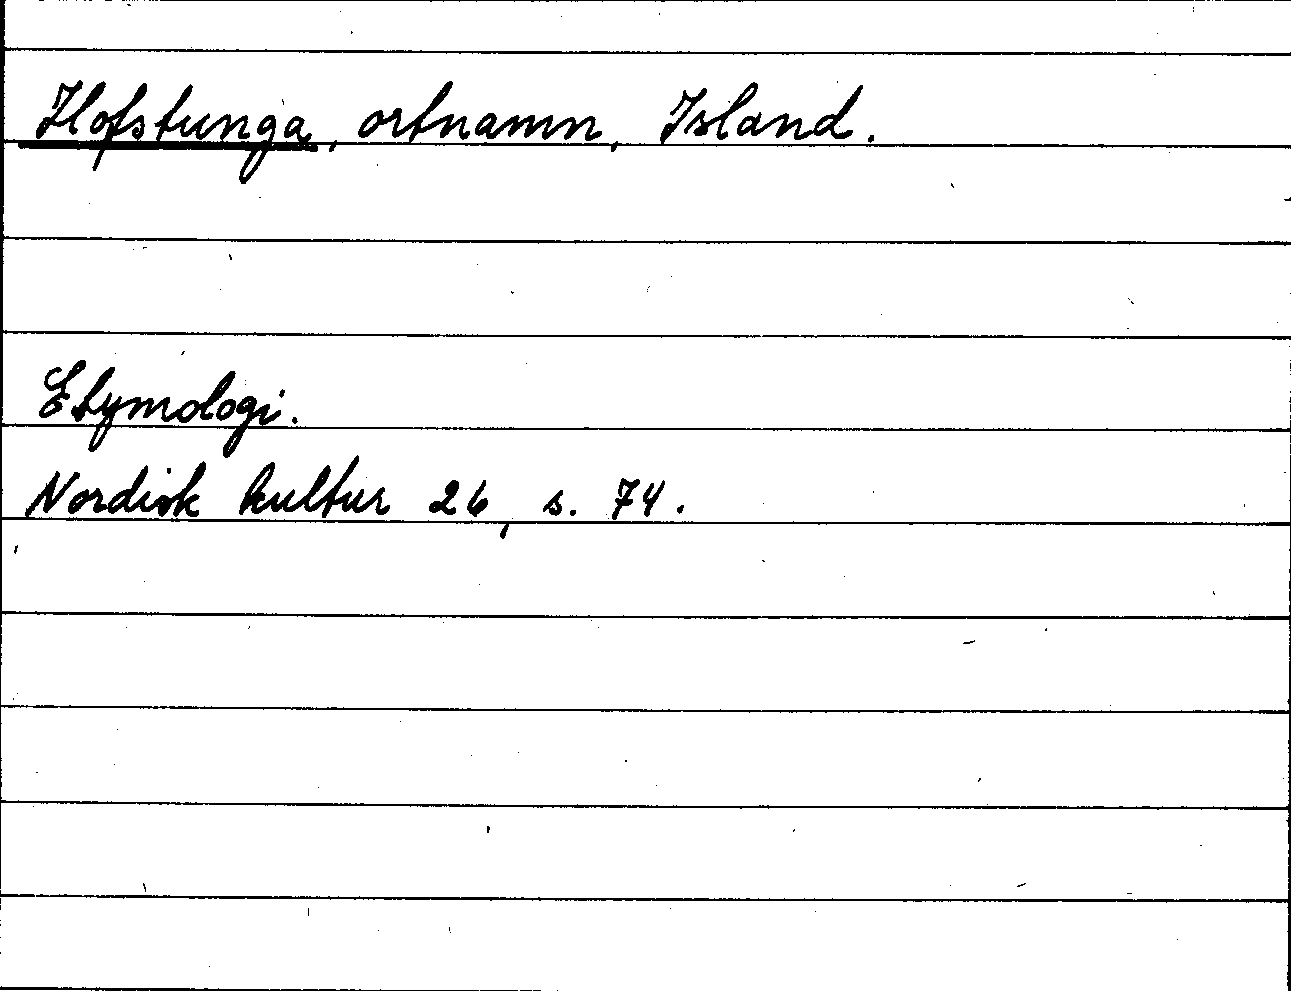 Hofstunga, ortnamn, Island.
Etymologi.
Nordisk kultur 26, s. 74.